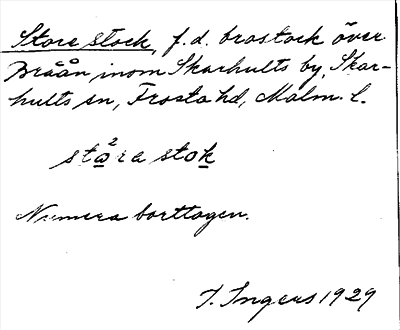 Store stock, f.d. brostock över
Bråån, inom Skarhults by, Skar-
hults sn, Frosta hd, Malm. l.
stå²ra stok
Numera borttagen.
I. Ingers 1929